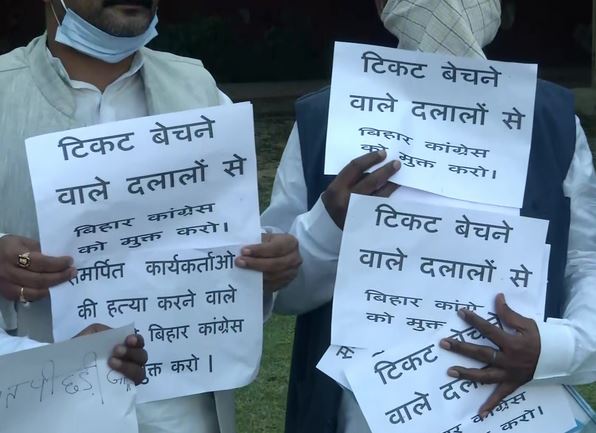 टिकट बेचने
वाले दलालों से
बिहार कांग्रेस
को मुक्त करो।
समर्पित कार्यकर्ताओ
की हत्या करने वाले
बिहार कांग्रेस
करो ।
टिकट बेचने
वाले दलालों से
बिहार कांग्रेस
को मुक्त करो।
टिकट बेचने
वाले दलालों से
बिहार
को मुक्त
टिकट बेचने
वाले दलालों से